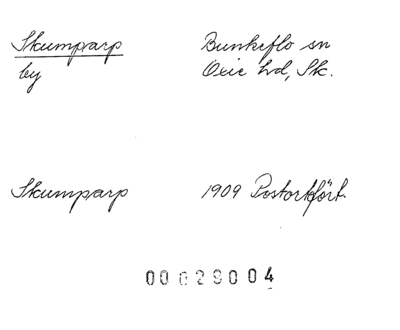 Skumparp Bunkeflo sn
by Oxie hd, Sk.
Skumparp 1909 Postortfört.